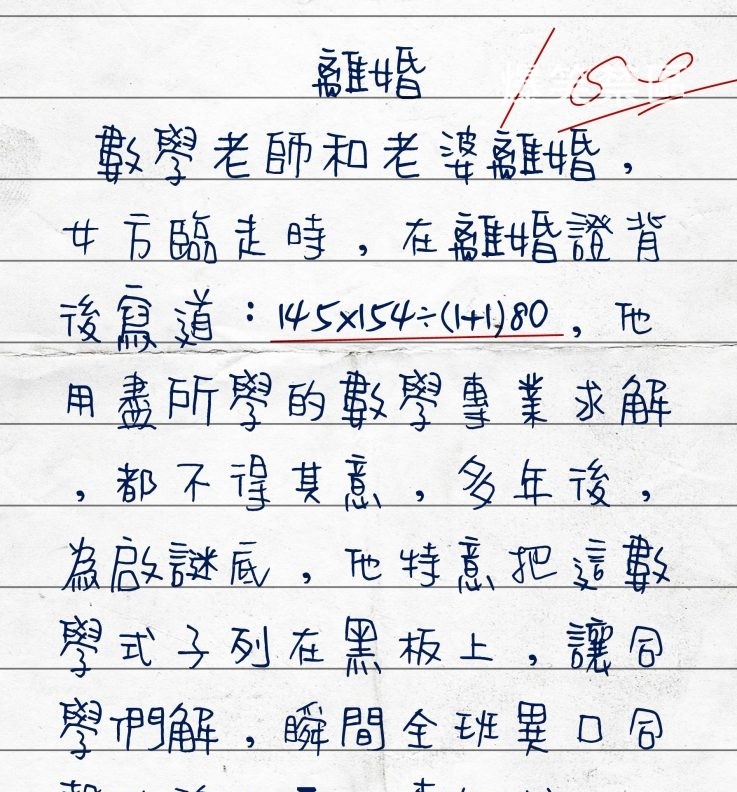 離婚
數學老師和老婆離婚，
女方臨走時，在離婚證背
後寫道：145×154÷(1+1)80，他
用盡所學的數學專業求解
，都不得其意，多年後，
為啟謎底，他特意把這數
學式子列在黑板上，讓同
學們解，瞬間全班異口同